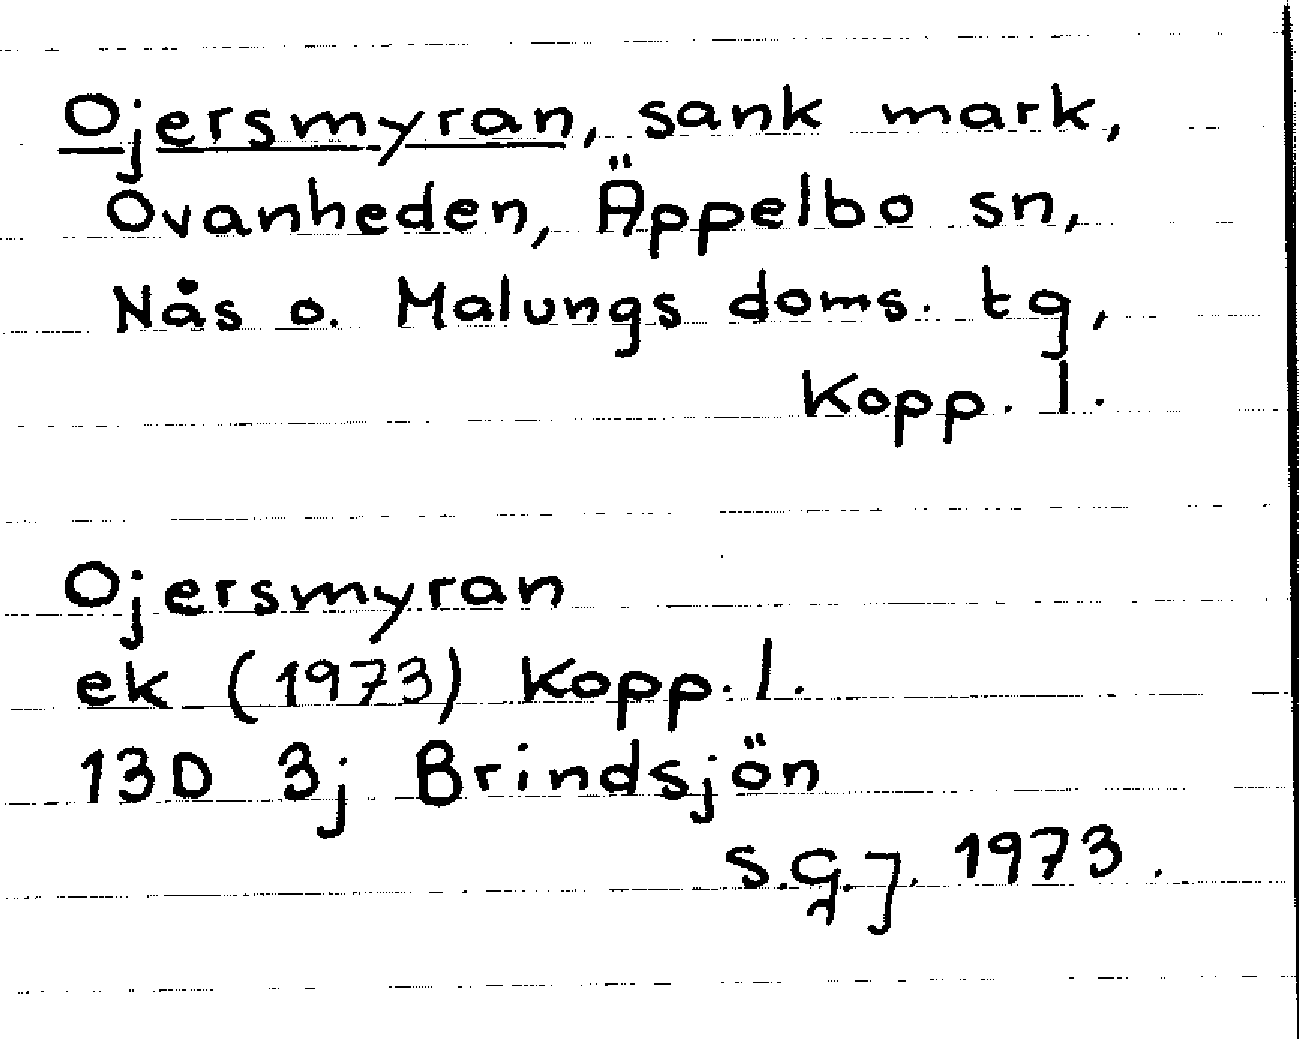 Ojersmyran, sank mark,
Ovanheden, Äppelbo sn,
Nås o. Malungs doms. tg,
Kopp. l.
Ojersmyran
ek (1973) Kopp. l.
13D 3j Brindsjön
S.G.J. 1973.